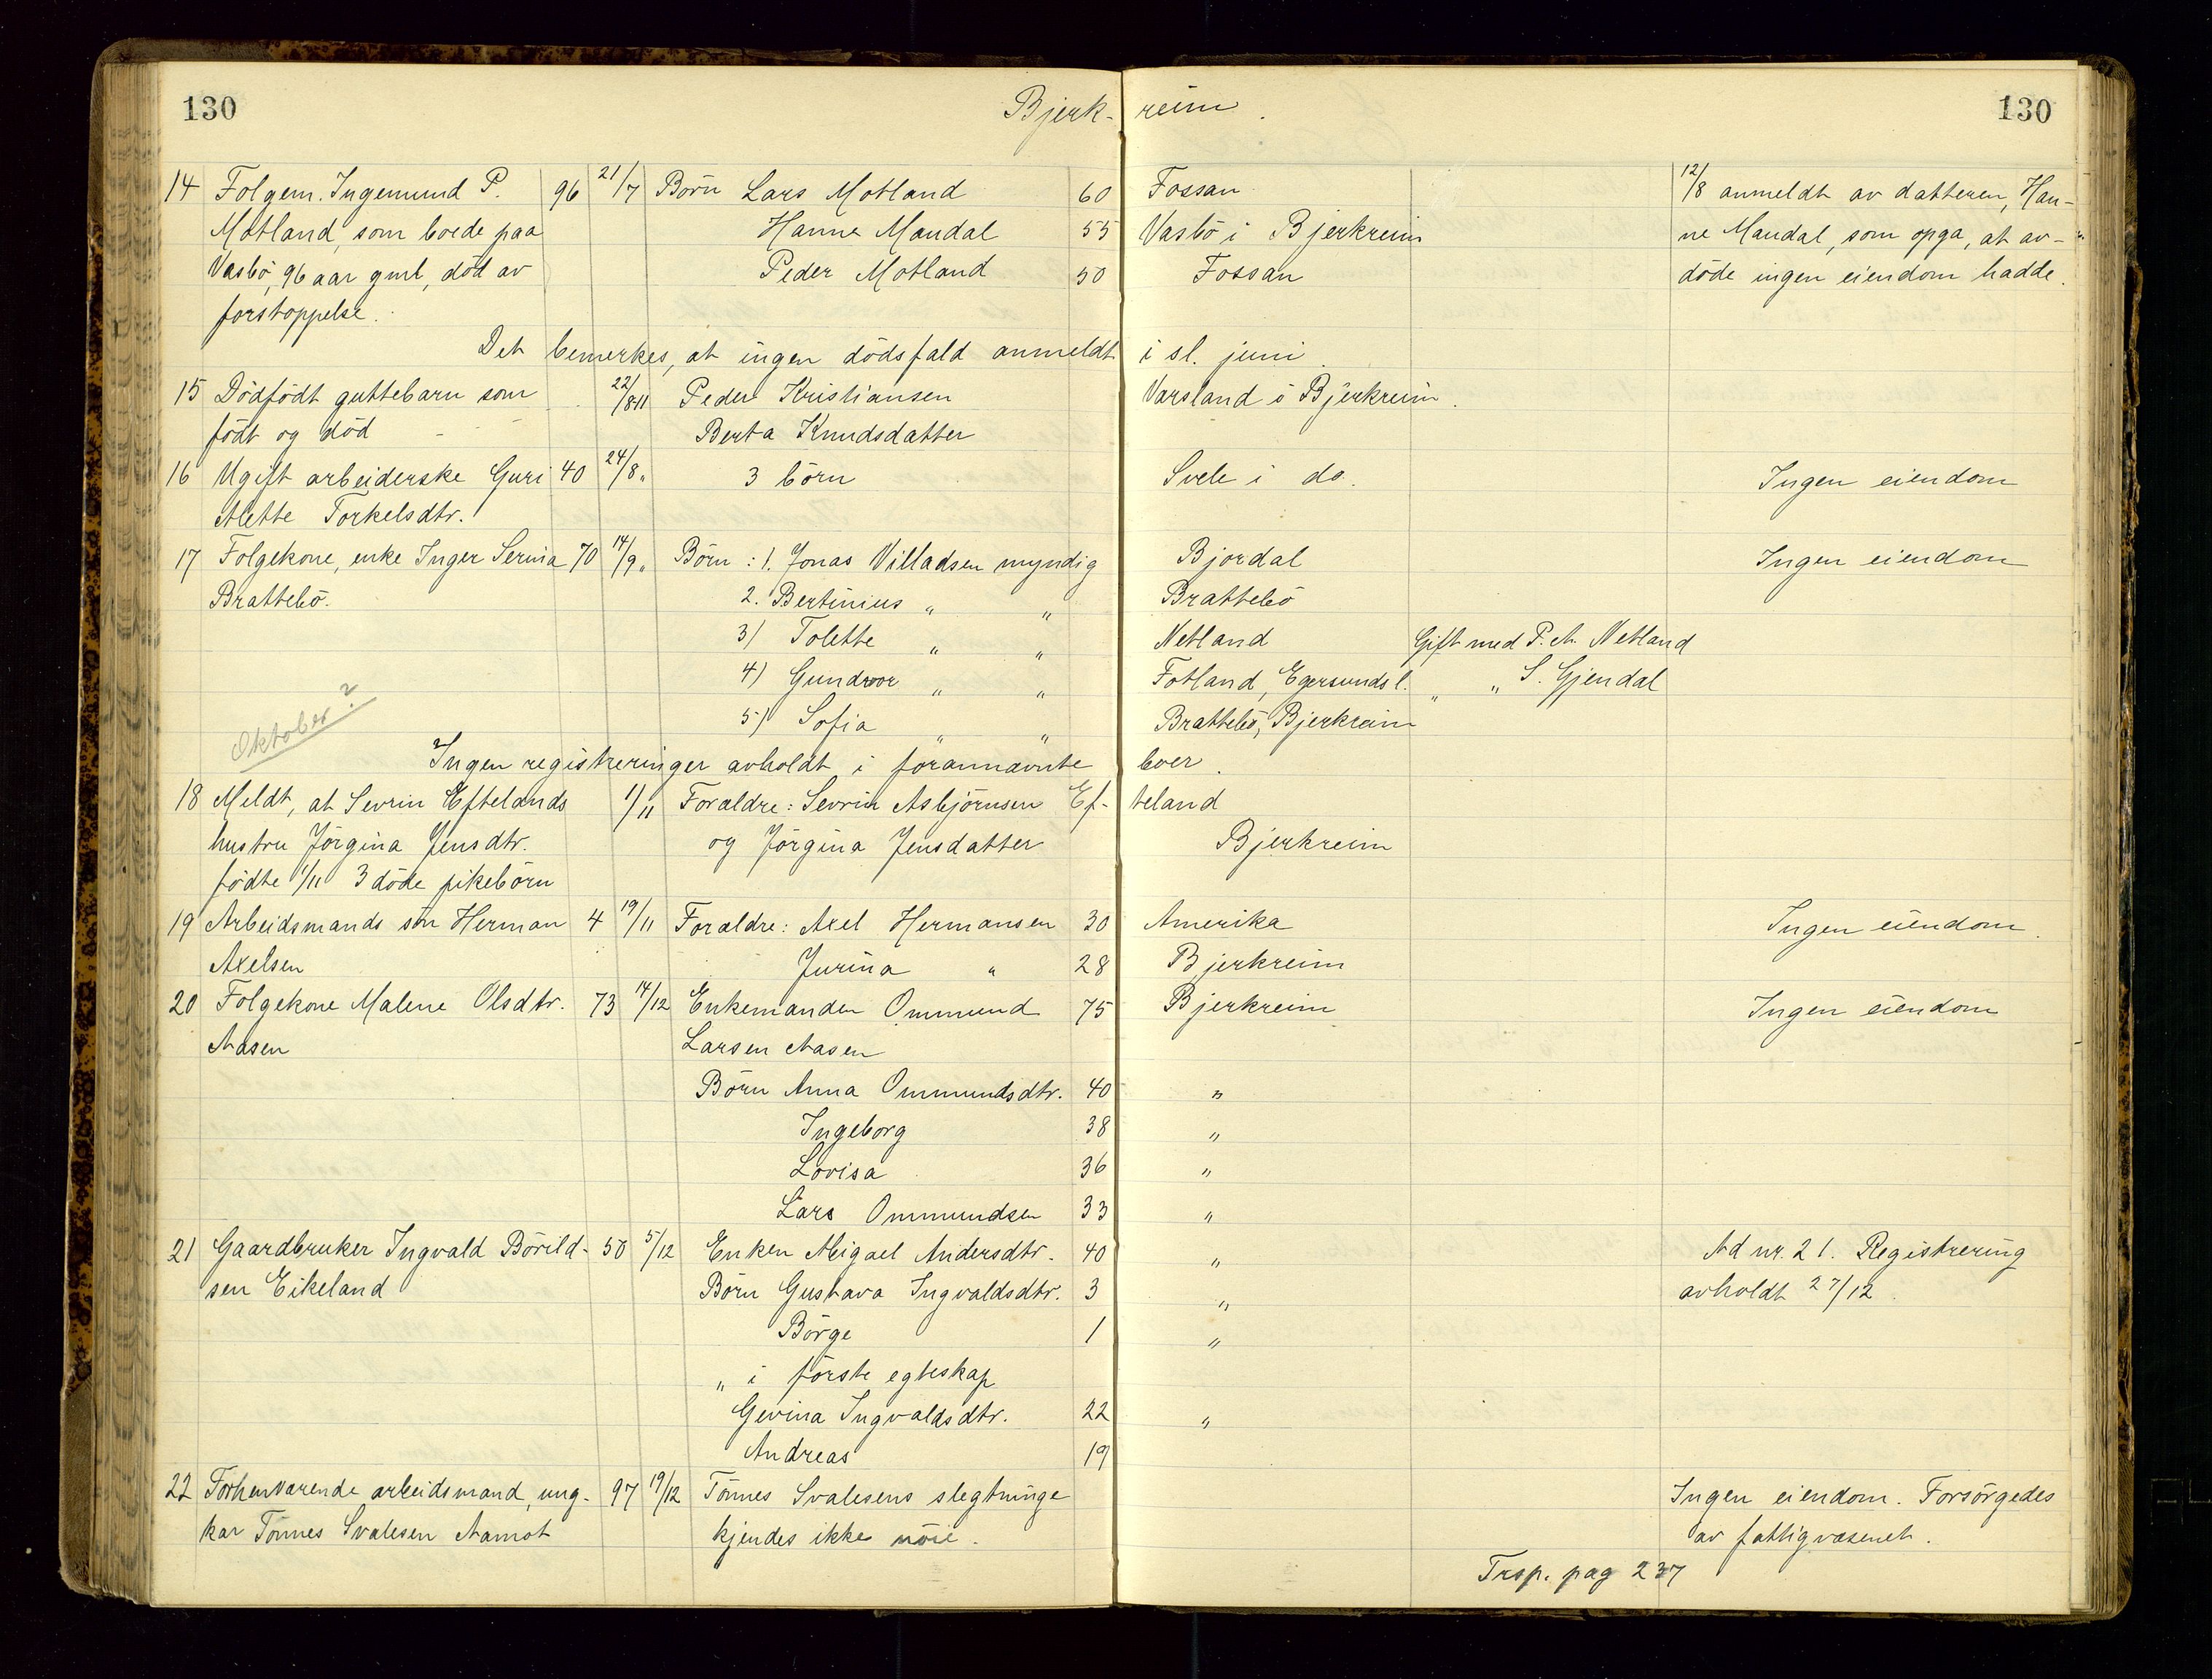 130 Bjerk- reim. 130
14 Folgem. Ingemund P. 96 21/7 Börn Lars Motland 60 Fossan 12/8 anmeldt av datteren, Han-
Motland, som boede paa Hanne Maudal 55 Vasbö i Bjerkreim ne Maudal, som opga, at av-
Vasbö, 96 aar gml, död av Peder Motland 50 Fossan döde ingen eiendom hadde.
forstoppelse.
Det bemerkes, at ingen dödsfald anmeldt i sl. juni.
15 Dödfödt guttebarn som 22/8 11 Peder Kristiansen Varsland i Bjerkreim.
födt og död Berta Knudsdatter
16 Ugift arbeiderske Guri 40 24/8 " 3 börn Svele i do. Ingen eiendom
Alette Torkelsdtr.
17 Folgekone, enke Inger Serina 70 14/9 " Börn: 1. Jonas Villadsen myndig Bjordal Ingen eiendom
Brattebö. 2. Bertinius " " Brattebö
3) Tolette " " Netland Gift med P. A. Netland
4) Gundvor " " Fotland, Egersunds l. " " S. Gjendal
Oktober?
5) Sofia " " Brattebö, Bjerkreim
Ingen registreringer avholdt i forannævnte boer.
18 Meldt, at Sevrin Eftelands 1/11 Foræeldre: Sevrin Asbjörnsen Ef- teland
hustru Jörgina Jensdtr. og Jörgina Jensdatter Bjerkreim
födte 1/11 3 döde pikebörn
19 Arbeidsmands sön Herman 4 19/11 Forældre: Axel Hermansen 30 Amerika Ingen eiendom.
Axelsen Jurina " 28 Bjerkreim
20 Folgekone Malene Olsdtr. 73 14/12 Enkemanden Ommund 75 Bjerkreim Ingen eiendom
Aasen Larsen Aasen
Börn Anna Ommundsdtr. 40 "
Ingeborg 38 "
Lovisa 36 "
Lars Ommundsen 33 "
21 Gaardbruker Ingvald Börild- 50 5/12 Enken Abigael Andersdtr. 40 " Ad nr. 21. Registrering
sen Eikeland Börn Gustava Ingvaldsdtr. 3 " avholdt 27/12.
Börge 1 "
" i förste egteskap
Gevina Ingvaldsdtr. 22 "
Andreas 19
22 Forhenværende arbeidsmand, ung- 97 19/12 Tönnes Svalesens slegtninge Ingen eiendom. Forsörgedes
kar Tönnes Svalesen Aamot kjendes ikke nöie. av fattigvæsenet.
Trsp. pag 237